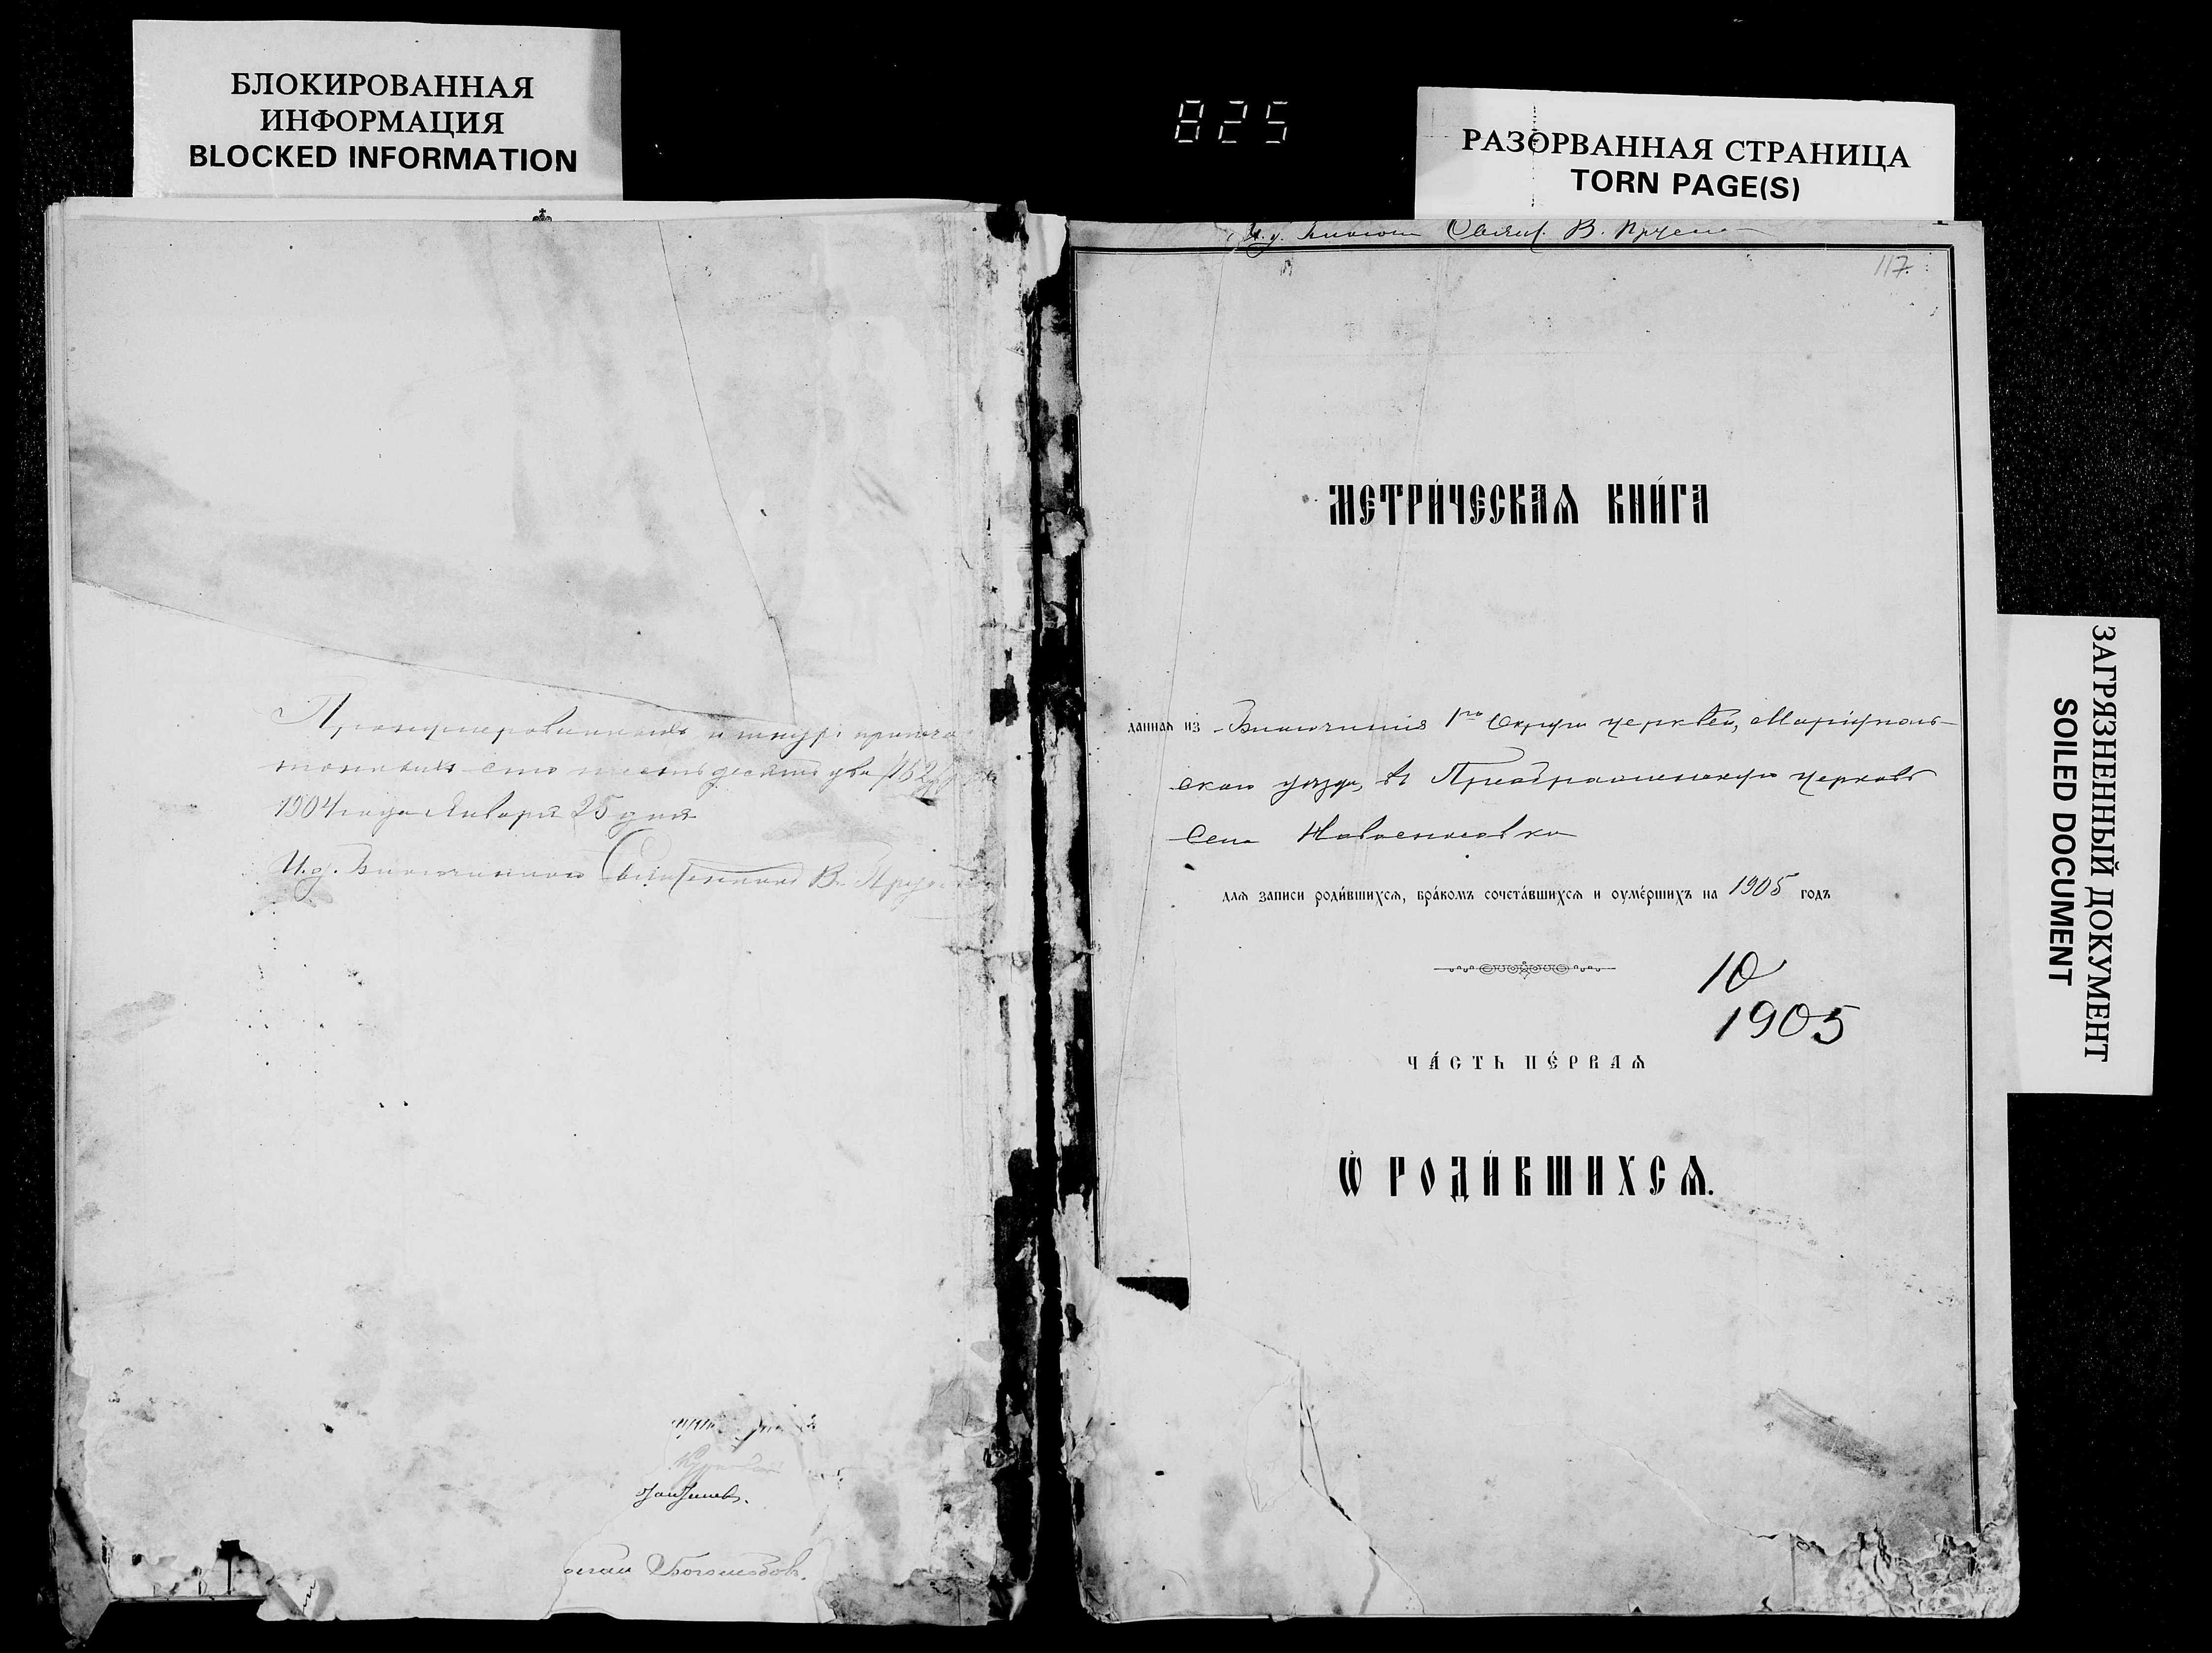 БЛОКИРОВАННАЯ
ИНФОРМАЦИЯ
BLOCKED INFORMATION
825
РАЗОРВАННАЯ СТРАНИЦА
TORN PAGE(S)
И. д. Благоч. Свящ. В.
117.
Пронумерованныхъ и
сто шестьдесятъ два /162/
1904 года Января 25 дня
И. д. Благочиннаго Священникъ В.
Боголюбовъ.
МЕТРИ́ЧЕСКАѦ КНИ́ГА
даннаѧ из Благочинія 1го Округа церквей, Маріуполь-
скаго уѣзда, въ Преображенскую церковь
села Новоспасовка
длѧ записи роди́вшихсѧ, бра́комъ сочета́вшихсѧ и оуме́ршихъ на 1905 годъ
10
1905
ЧА́СТЬ ПЕ́РВАѦ
Ѡ҆ РОДИ́ВШИХСѦ.
ЗАГРЯЗНЕННЫЙ ДОКУМЕНТ
SOILED DOCUMENT